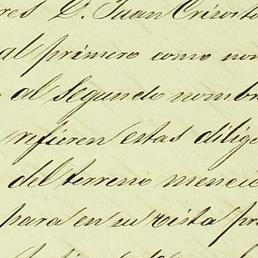 res D. Juan Crisós
al primero como no
al Segundo nombr
refieren estas dilige
del terreno mencio
para en su vista pr